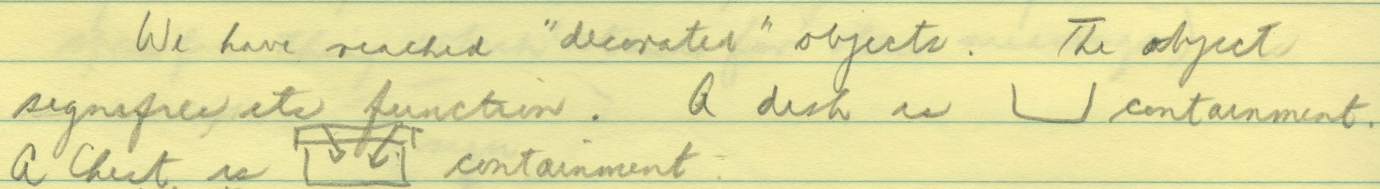 We have reached "decorated" objects. The object
signifies its function. A dish is containment.
A Chest is containment.